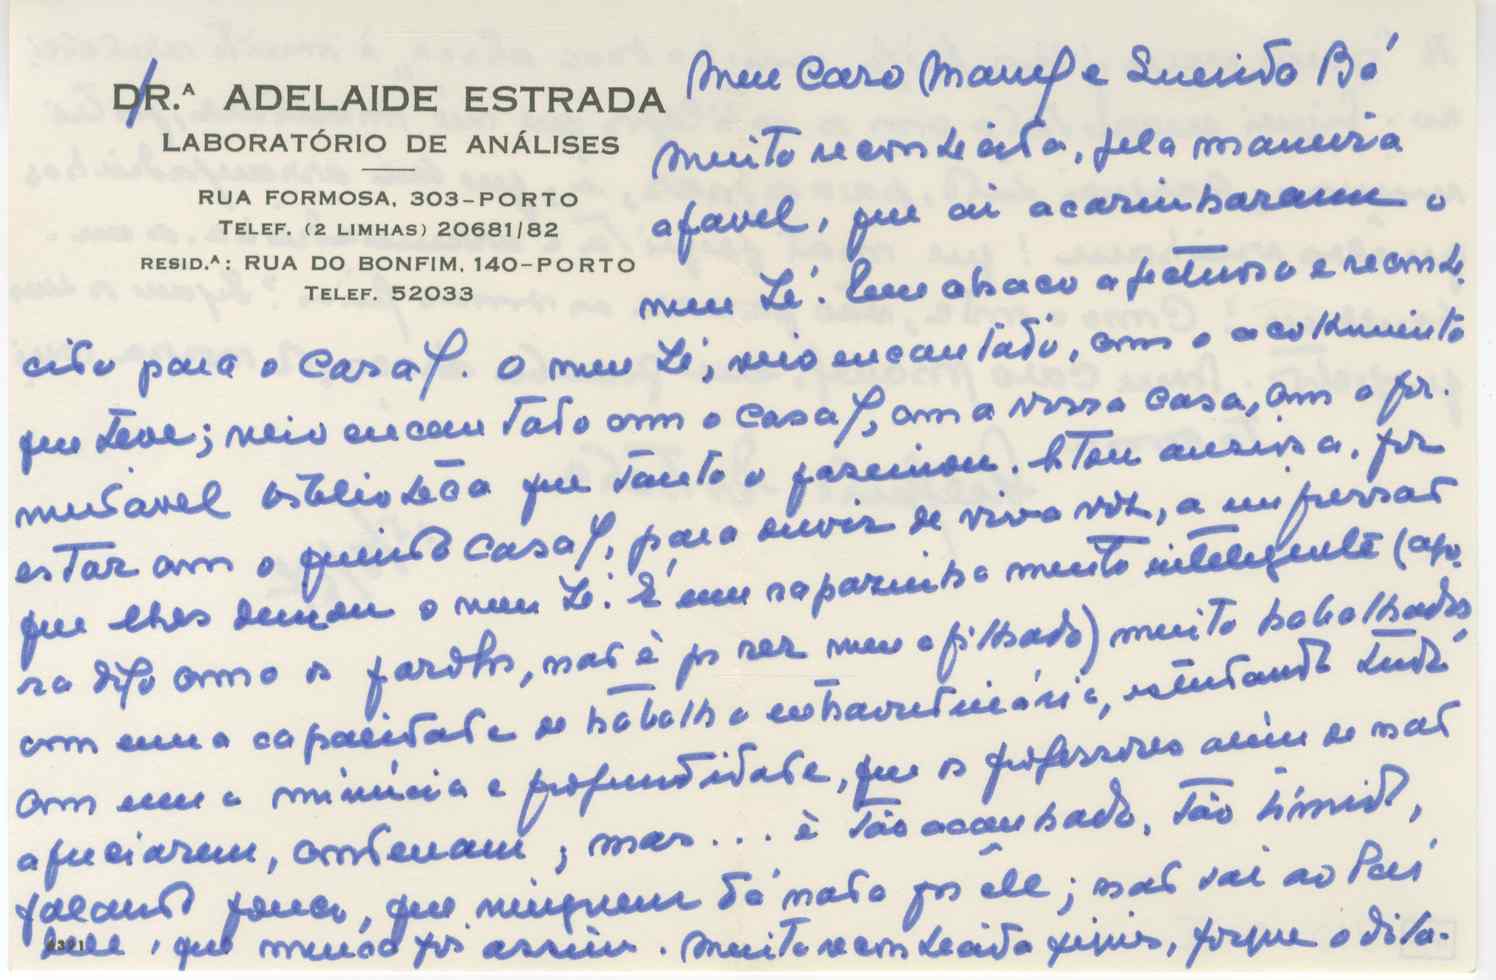 DR.ᴬ ADELAIDE ESTRADA
LABORATÓRIO DE ANÁLISES
RUA FORMOSA, 303-PORTO
TELEF. (2 LIMHAS) 20681/82
RESID.ᴬ: RUA DO BONFIM, 140-PORTO
TELEF. 52033
Meu Caro Manuel e Querida Bó
Muito reconhecida, pela maneira
afavel, que ai acarinharam o
meu Zé. Um abraço afectuoso e reconhe
cido para o Casal. O meu Zé, veio encantado, com o acolhimento
que teve; veio encantado com o Casal, com a vossa casa, com o for.
midavel biblioteca que tanto o fascinou. Estou ansiosa, por
estar com o querido Casal, para ouvir de viva voz, a impressão
que lhes deixou o meu Zé. É um rapazinho muito inteligente (ago.
ra digo como os parolos, não é por ser meu afilhado) muito trabalhador
com uma capacidade de trabalho extraordinária, estudando tudo
com uma minúcia e profundidade, que os professores além de não
apreciarem, condenam; mas... é tão acanhado, tão tímido,
falando pouco, que ninguem dá nada por êle; não vai ao Pai
que nunca foi assim. Muito reconhecida fiquei, porque o dita-